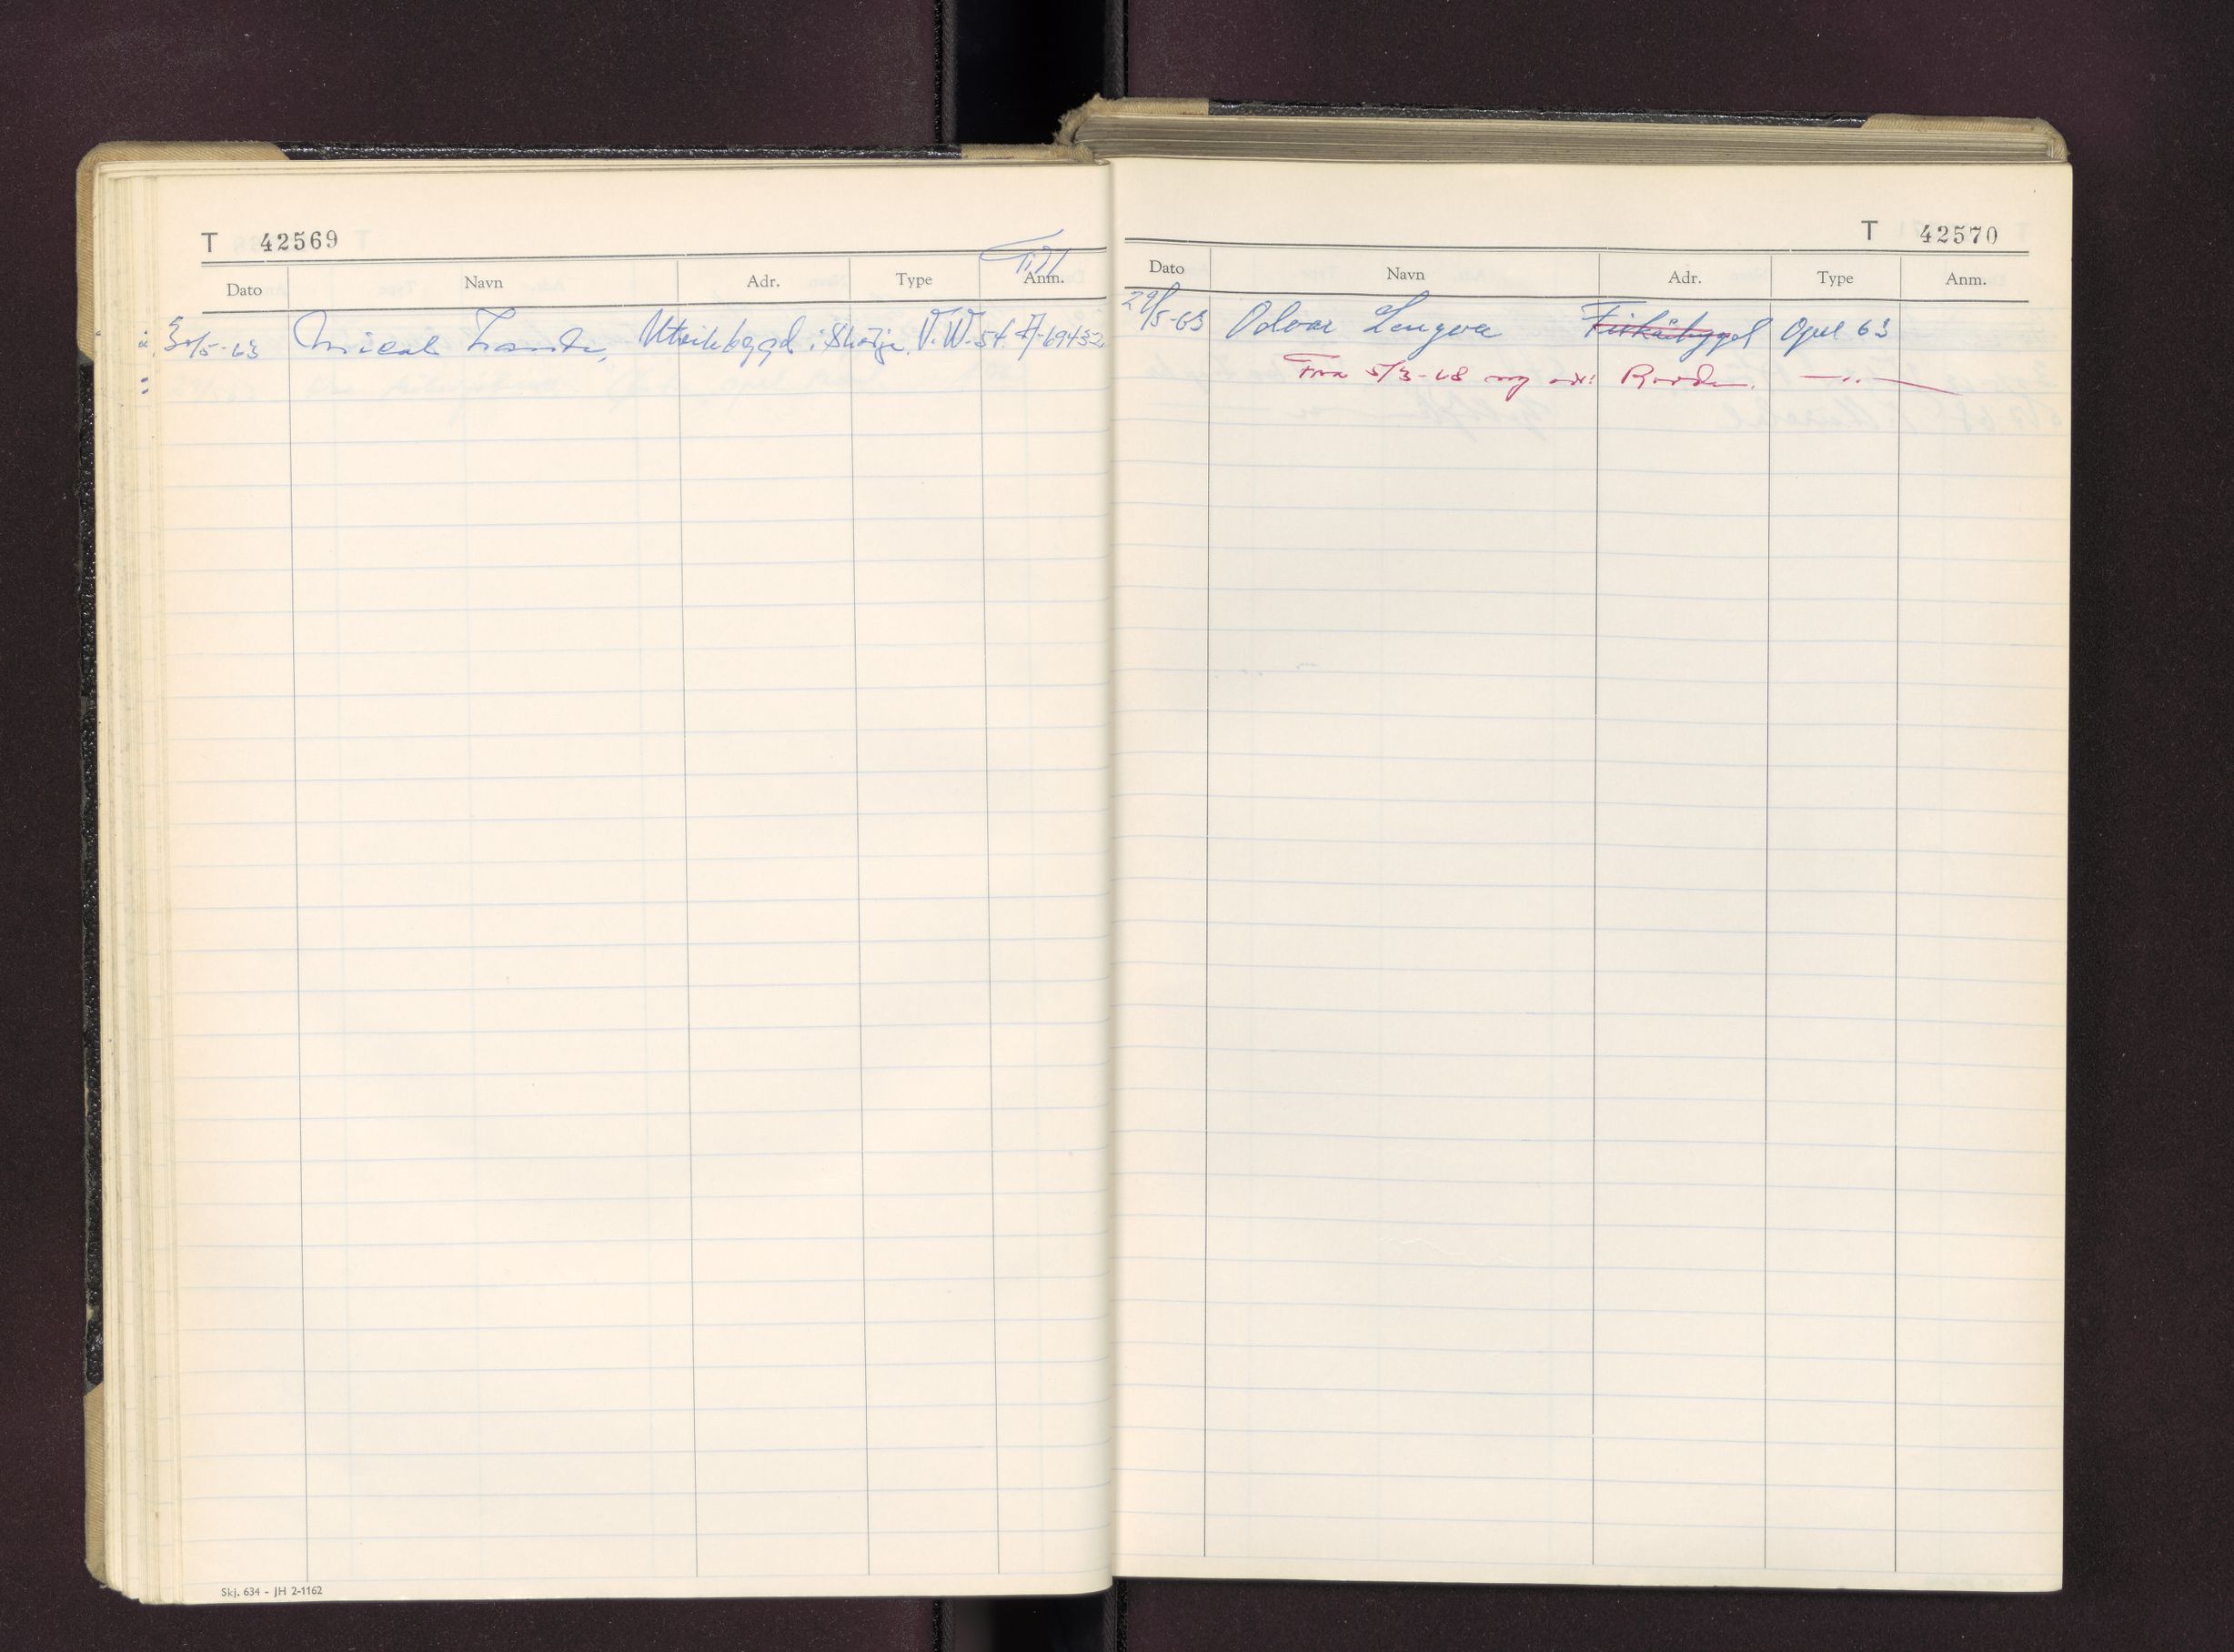 T 42569
Till
Dato Navn Adr. Type Anm.
30/5-63 Mical V.W. 54. A-69432
Skj. 634 - JH 2-1162
T 42570
Dato Navn Adr. Type Anm.
29/5-63 Odvar Lengva Firkåbygd Opel 63
Fra 5/3-68 ny adr: — " —